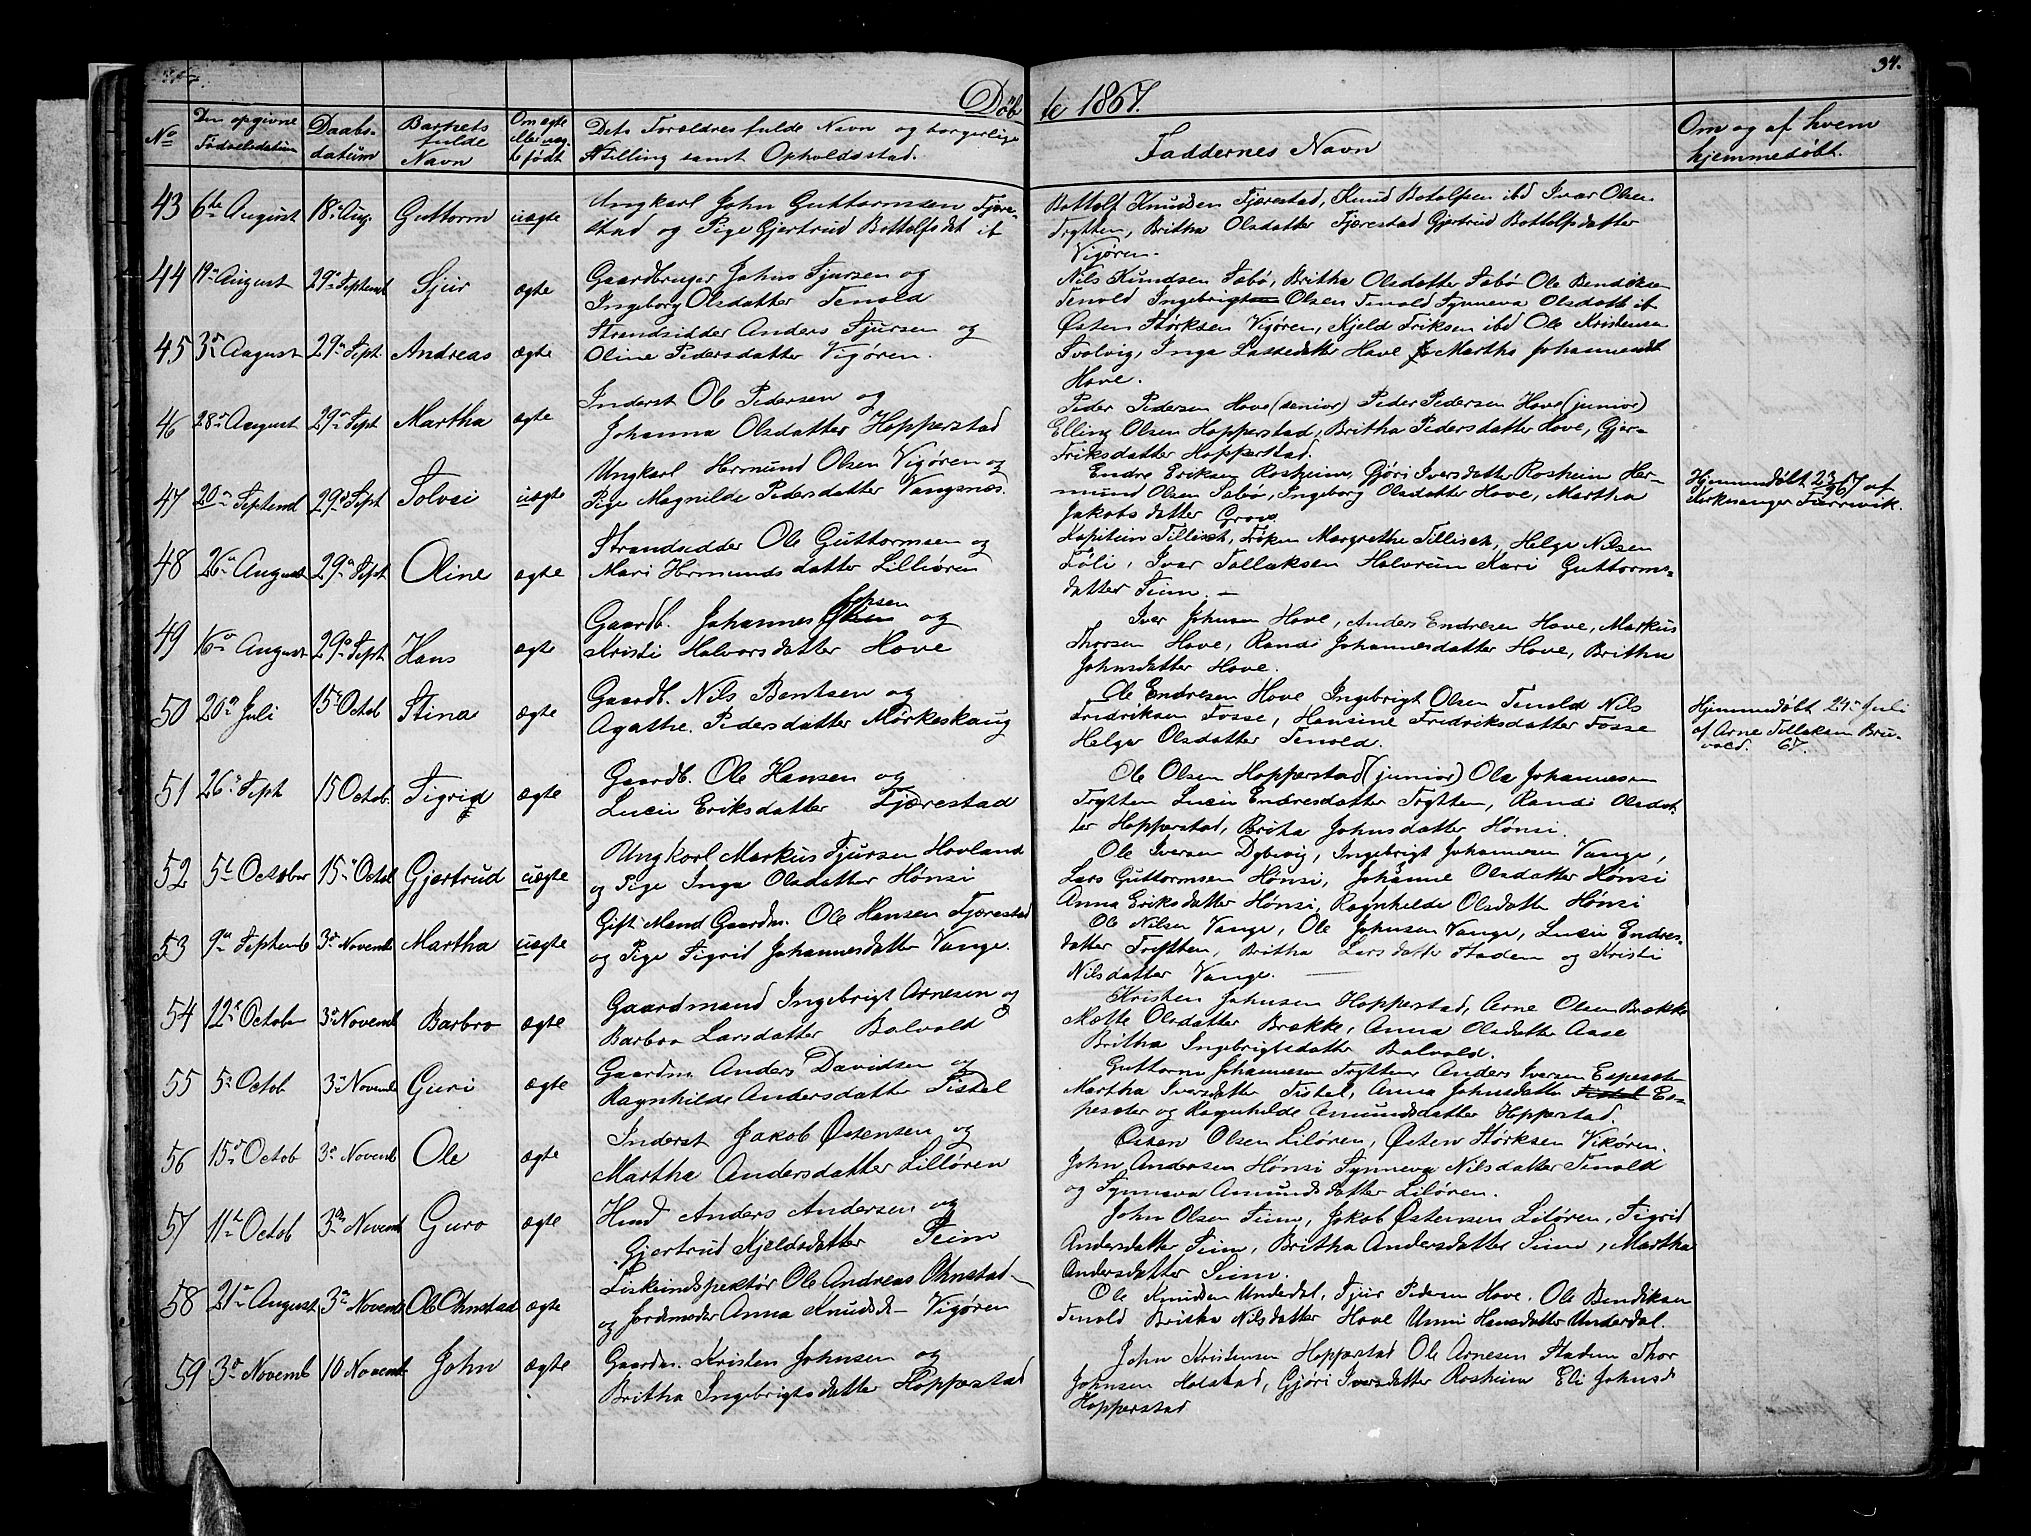 34.
Døbte 1867.
No
Den opgivne Fødselsdatum
Daabsdatum
Barnets fulde Navn
Om ægte eller uægte født
Dets Forældres fulde Navn og borgerlige Stilling samt Opholdssted.
Faddernes Navn
Om og af hvem hjemmedøbt.
43 6te August 18 Aug. Guttorm uægte
Ungkarl John Guttormsen Fjære-
stad og Pige Gjertrud Bottolfsdat ib
Bottolf Knudsen Fjærestad, Knud Botolfsen ibd Ivar Olsen
Trytten, Britha Olsdatter Fjærestad Gjertrud Bottolfsdatter
Vigøren.
44 19 August 29 Septemb Sjur ægte
Gaardbruger Johns Sjursen og
Ingeborg Olsdatter Tenold
Nils Knudsen Sabø, Britha Olsdatter Sabø Ole Bendiksen
Tenold Ingebrigt Olsen Tenold Synneva Olsdatt ib
45 3 August 29 Sept. Andreas ægte
Strandsidder Anders Sjursen og
Oline Pedersdatter Vigøren.
Østen Størksen Vigøren, Kjeld Eriksen ibd Ole Kristensen
Svolvig, Inga Lassedatter Hove Martha Johannesdt
Hove.
46 28 August 29 Sept Martha ægte
Inderst Ole Pedersen og
Johanna Olsdatter Hopperstad
Peder Pedersen Hove (senior) Peder Pedersen Hove (junior)
Elling Olsen Hopperstad, Britha Pedersdatter Hove, Gjer-
Eriksdatter Hopperstad.
47 20 Septemb 29 Sept Solvei uægte
Ungkarl Hermund Olsen Vigøren og
Pige Magnilde Pedersdatter Vangsnæs.
Endre Eriksen Rosheim, Gjøri Iversdatter Rosheim Her-
mund Olsen Sabø, Ingeborg Olsdatter Hove, Martha
Jakobsdatter Grov
Hjemmedøbt 23/9 67 af
Kirkesanger Farrevik.
48 26 August 29 Sept Oline ægte
Strandsidder Ole Guttormsen og
Mari Hermundsdatter Lilliøren
Kapitein Tillisch, Frøken Margrethe Tillisch, Helge Nilsen
Føli, Ivar Tollaksen Halvrum Kari Guttorms-
datter Seim. —
49 16 August 29 Sept Hans ægte
Gaardb. Johannes Jepsen og
Kristi Halvorsdatter Hove
Iver Johnsen Hove, Anders Endresen Hove, Markus
Thorsen Hove, Randi Johannesdatter Hove, Britha
Johnsdatter Hove.
50 20 Juli 15 Octob Stina ægte
Gaardb. Nils Bentsen og
Agathe Pedersdatter Mørkeskaug
Ole Endresen Hove Ingebrigt Olsen Tenold Nils
Fredriksen Fosse, Hansine Fredriksdatter Fosse
Helge Olsdatter Tenold.
Hjemmedøbt 24 Juli
af Arne Tollaksen Bru-
vold. 67
51 26 Sept 15 Octob. Sigrid ægte
Gaardb. Ole Hansen og
Lucie Eriksdatter Fjærestad
Ole Olsen Hopperstad (junior) Ole Johannesen
Trytten Lucie Endresdatter Trytten, Randi Olsdat-
ter Hopperstad, Brita Johnsdatter Hønsi.
52 5t October 15 Octob Gjertrud uægte
Ungkarl Markus Sjursen Hovland
og Pige Inga Olsdatter Hønsi
Ole Iversen Dybvig, Ingebrigt Johannesen Vange,
Lars Guttormsen Hønsi, Johanne Olsdatter Hønsi
Anna Eriksdatter Hønsi, Ragnhilde Olsdatte Hønsi
53 9 Septemb 3 Novemb Martha uægte
Gift Mand Gaardm. Ole Hansen Fjærestad
og Pige Sigrid Johannesdatter Vange.
Ole Nilsen Vange, Ole Johnsen Vange, Lucie Endres-
datter Trytten, Britha Larsdatte Stadem og Kristi
Nilsdatter Vange.
54 12 Octob 3 Novemb Barbro ægte
Gaardmand Ingebrigt Arnesen og
Barbro Larsdatter Bolvold
Kristen Johnsen Hopperstad, Arne Olsen Brække
Mætte Olsdatter Brække, Anna Olsdatter Aase
Britha Ingebrigtsdatter Bolvold.
55 5 Octob 3 Novemb Guri ægte
Gaardm. Anders Davidsen og
Ragnhilde Andersdatter Fistel
Guttorm Johannesen Trytten Anders Iversen Espeseter
Martha Iversdatter Fistel, Anna Johnsdatter Fistel Es-
peseter og Ragnhilde Amundsdatter Hopperstad.
56 15 Octob 3 Novemb Ole ægte
Inderst Jakob Østensen og
Martha Andersdatter Lilløren
Østen Olsen Liløren, Østen Størksen Vikøren.
John Andersen Hønsi Synneva Nilsdatter Tenold
og Synneva Amundsdatter Liløren.
57 11t Octob 3 Novemb Guro ægte
Husd Anders Andersen og
Gjertrud Kjeldsdatter Seim
John Olsen Seim, Jakob Østensen Liløren, Sigrid
Andersdatter Seim, Britha Andersdatter Seim, Martha
Andersdatter Seim.
58 21 August 3 Novemb Ole Ohnstad ægte
Fiskeindspektør Ole Andreas Ohnstad
og Jordmoder Anna Knudsd- Vigøren
Ole Knudsen Underdal, Sjur Pedersen Hove. Ole Bendiksen
Tenold Britha Nilsdatter Hove Unni Hansdatter Underdal.
59 3 Novemb 10 Novemb John ægte
Gaardm. Kristen Johnsen og
Britha Ingebrigtsdatter Hopperstad
John Kristensen Hopperstad Ole Arnesen Stadem Thor
Johnsen Holstad, Gjøri Iversdatter Rosheim Eli Johnsd
Hopperstad